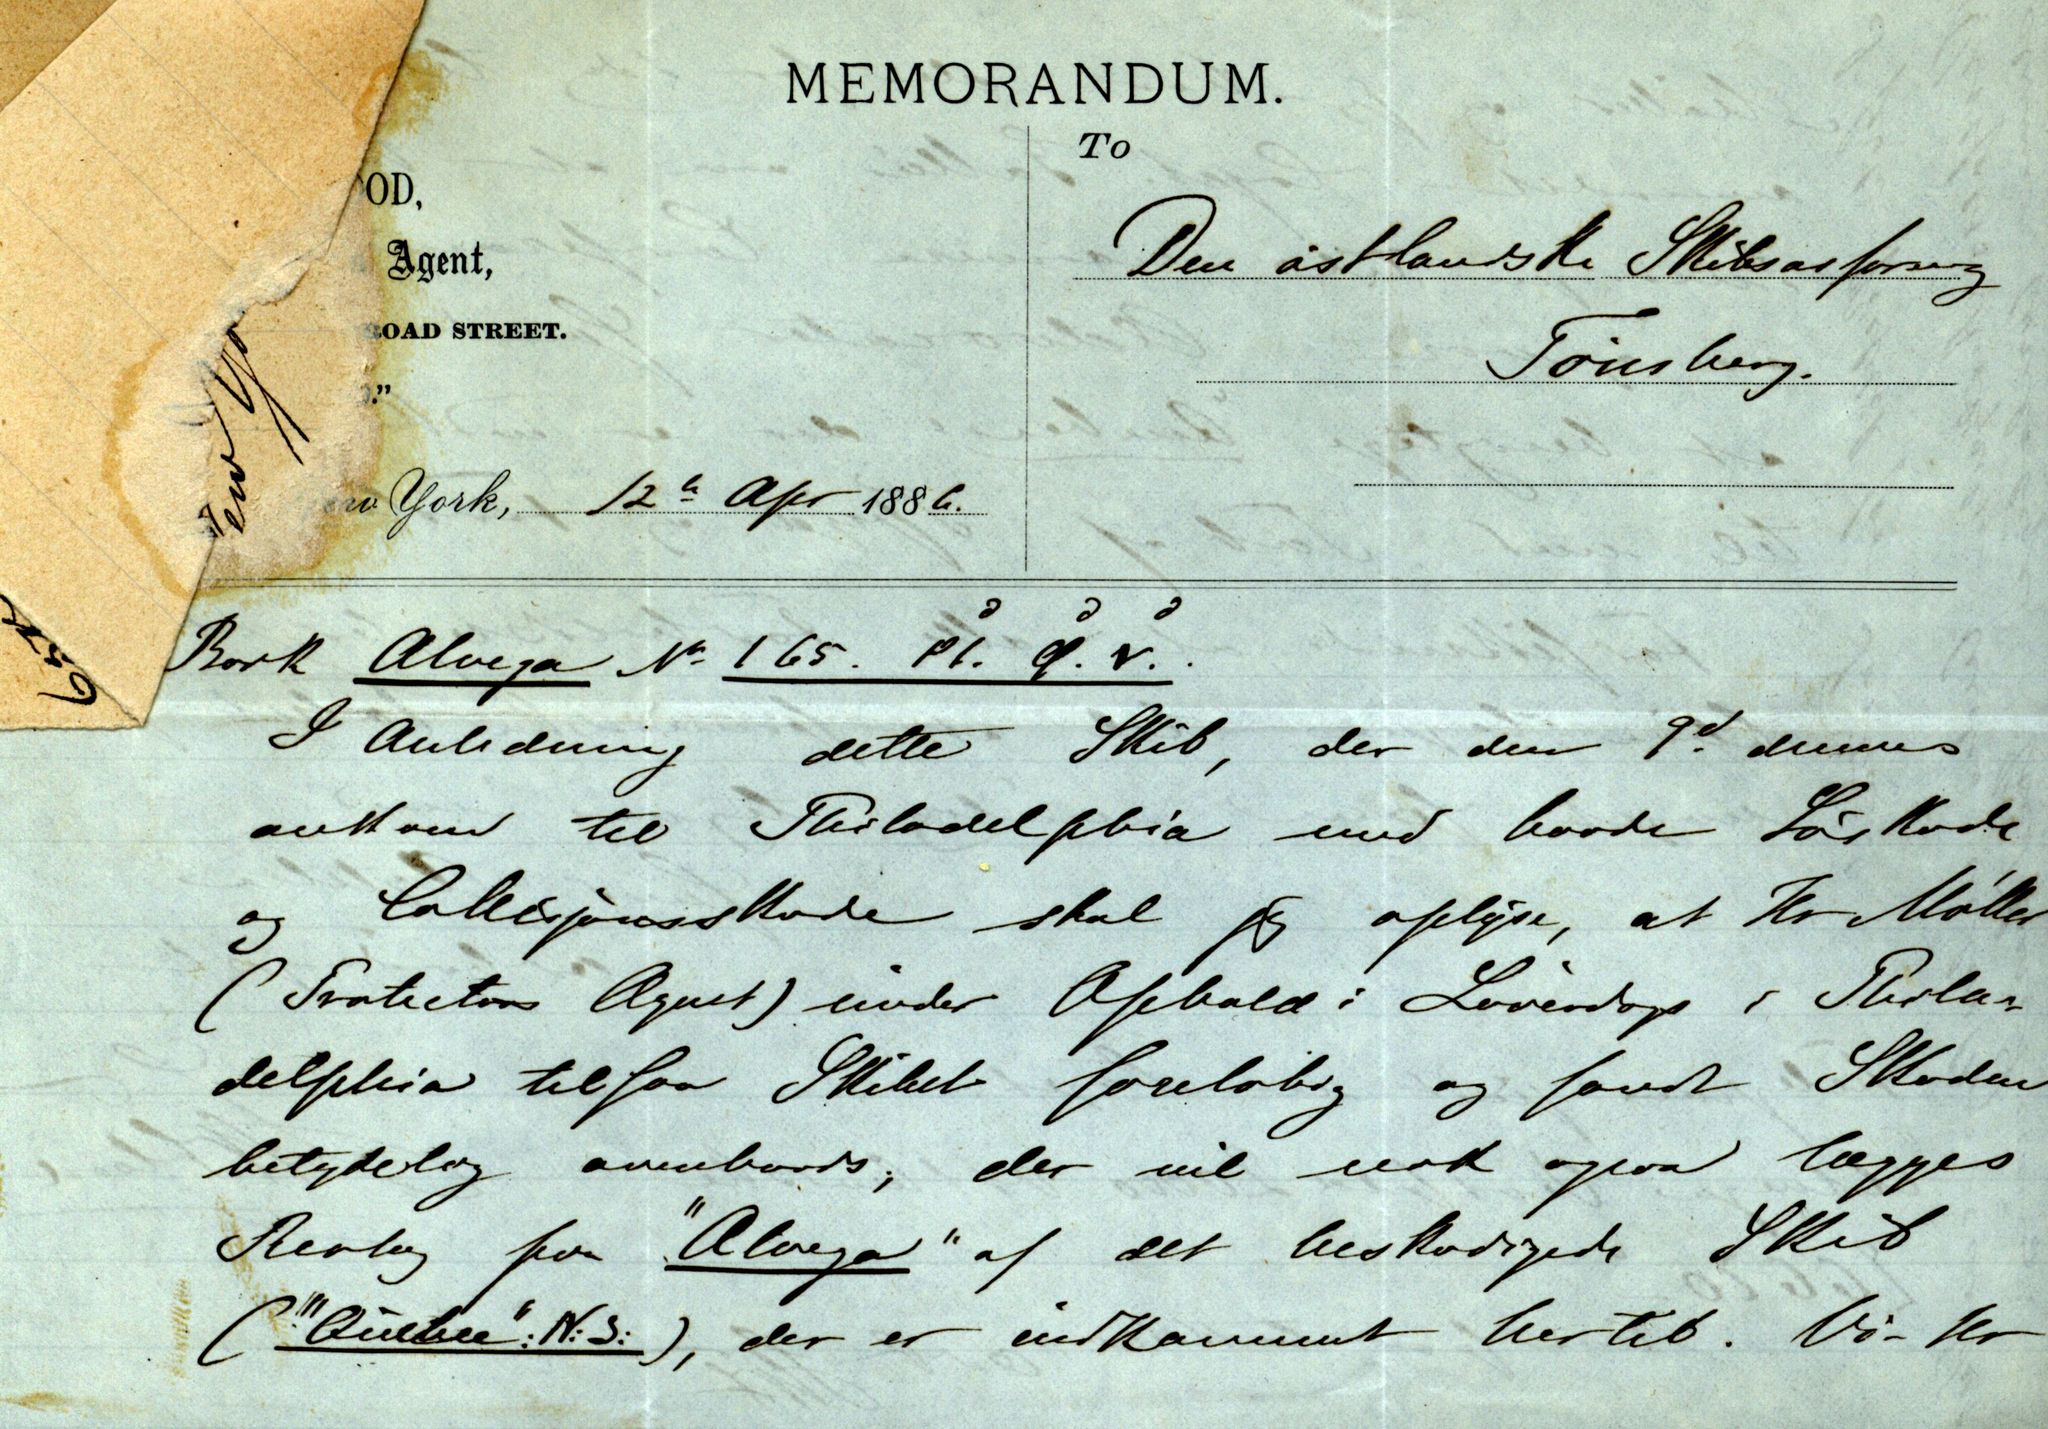 MEMORANDUM.
To
OD,
Agent,
ROAD STREET.
Den östlandske Skibsassforening
Tönsberg.
ew Yo
New York, 12te Apr 1886.
Bark Alvega No 165. Pl. q. v.
I Anledning dette Skib, der den 9d dennes
ankom til Philadelphia med baade Söskade
og Collisjonsskade skal jeg oplyse, at Hr Möller
(Protectors Agent) under Ophold i Löverdags i Phila-
delphia tilsaa Skibet foreløbig og fandt Skaden
betydelig ovenbords; der vil nok ogsaa lægges
Beslag paa "Alvega" af det beskadigede Skib
("Quebec": N: S:), der er indkommet hertil. Vi - Hr